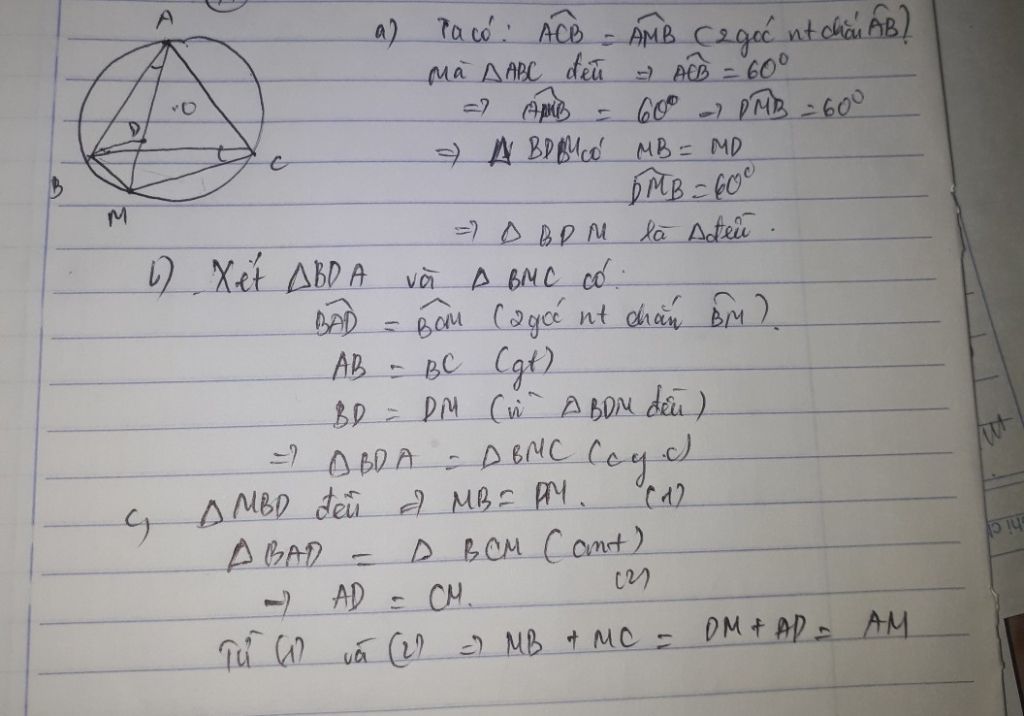 A
O
D
B
C
M
a) Ta có: ACB = AMB (2 góc nt chắn AB)
Mà ΔABC đều => ACB = 60°
=> AMB = 60° → DMB = 60°
=> Δ BDM có MB = MD
DMB = 60°
=> Δ BDM là Δ đều.
b) Xét ΔBDA và Δ BMC có:
BAD = BCM (2 góc nt chắn BM).
AB = BC (gt)
BD = DM (vì ΔBDM đều)
=> ΔBDA = ΔBMC (c g c)
c, ΔMBD đều => MB = DM. (1)
ΔBAD = Δ BCM (cmt)
→ AD = CM. (2)
Từ (1) và (2) => MB + MC = DM + AD = AM